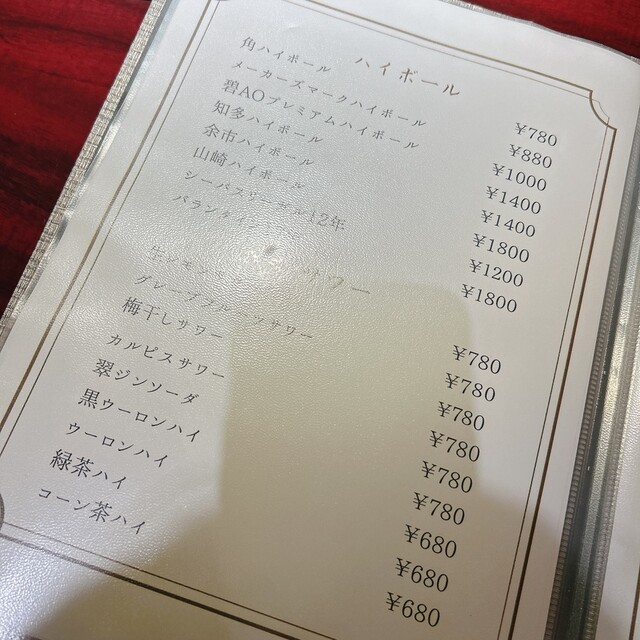 ハイボール
角ハイボール ¥780
メーカーズマークハイボール ¥880
碧AOプレミアムハイボール ¥1000
知多ハイボール ¥1400
余市ハイボール ¥1400
山崎ハイボール ¥1800
シーバスリーガル12年 ¥1200
バランタイン ¥1800
サワー
生レモン ¥780
グレープフルーツサワー ¥780
梅干しサワー ¥780
カルピスサワー ¥780
翠ジンソーダ ¥780
黒ウーロンハイ ¥780
ウーロンハイ ¥680
緑茶ハイ ¥680
コーン茶ハイ ¥680